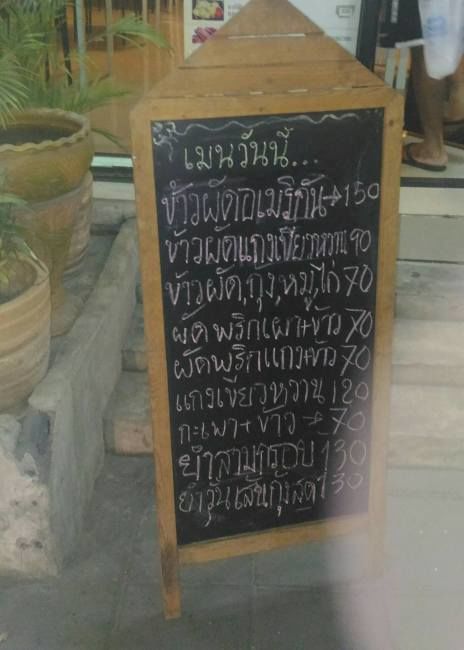 เมนูวันนี้...
ข้าวผัดอเมริกัน→150
ข้าวผัดแกงเขียวหวาน 90
ข้าวผัด,กุ้ง,หมู,ไก่ 70
ผัดพริกเผา+ข้าว 70
ผัดพริกแกง+ข้าว 70
แกงเขียวหวาน 120
กะเพา+ข้าว → 70
ยำสามกรอบ 130
ยำวุ้นเส้นกุ้งสด 130